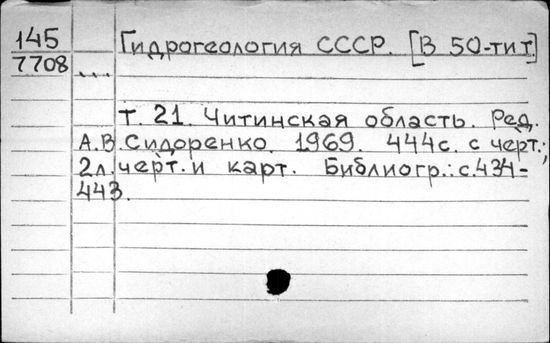 145 Гидрогеология СССР. [В 50-ти т.]
7708 ...
Т. 21. Читинская область. Ред.
А.В. Сидоренко. 1969. 444с. с черт.;
2л. черт. и карт. Библиогр.: с.434-
443.